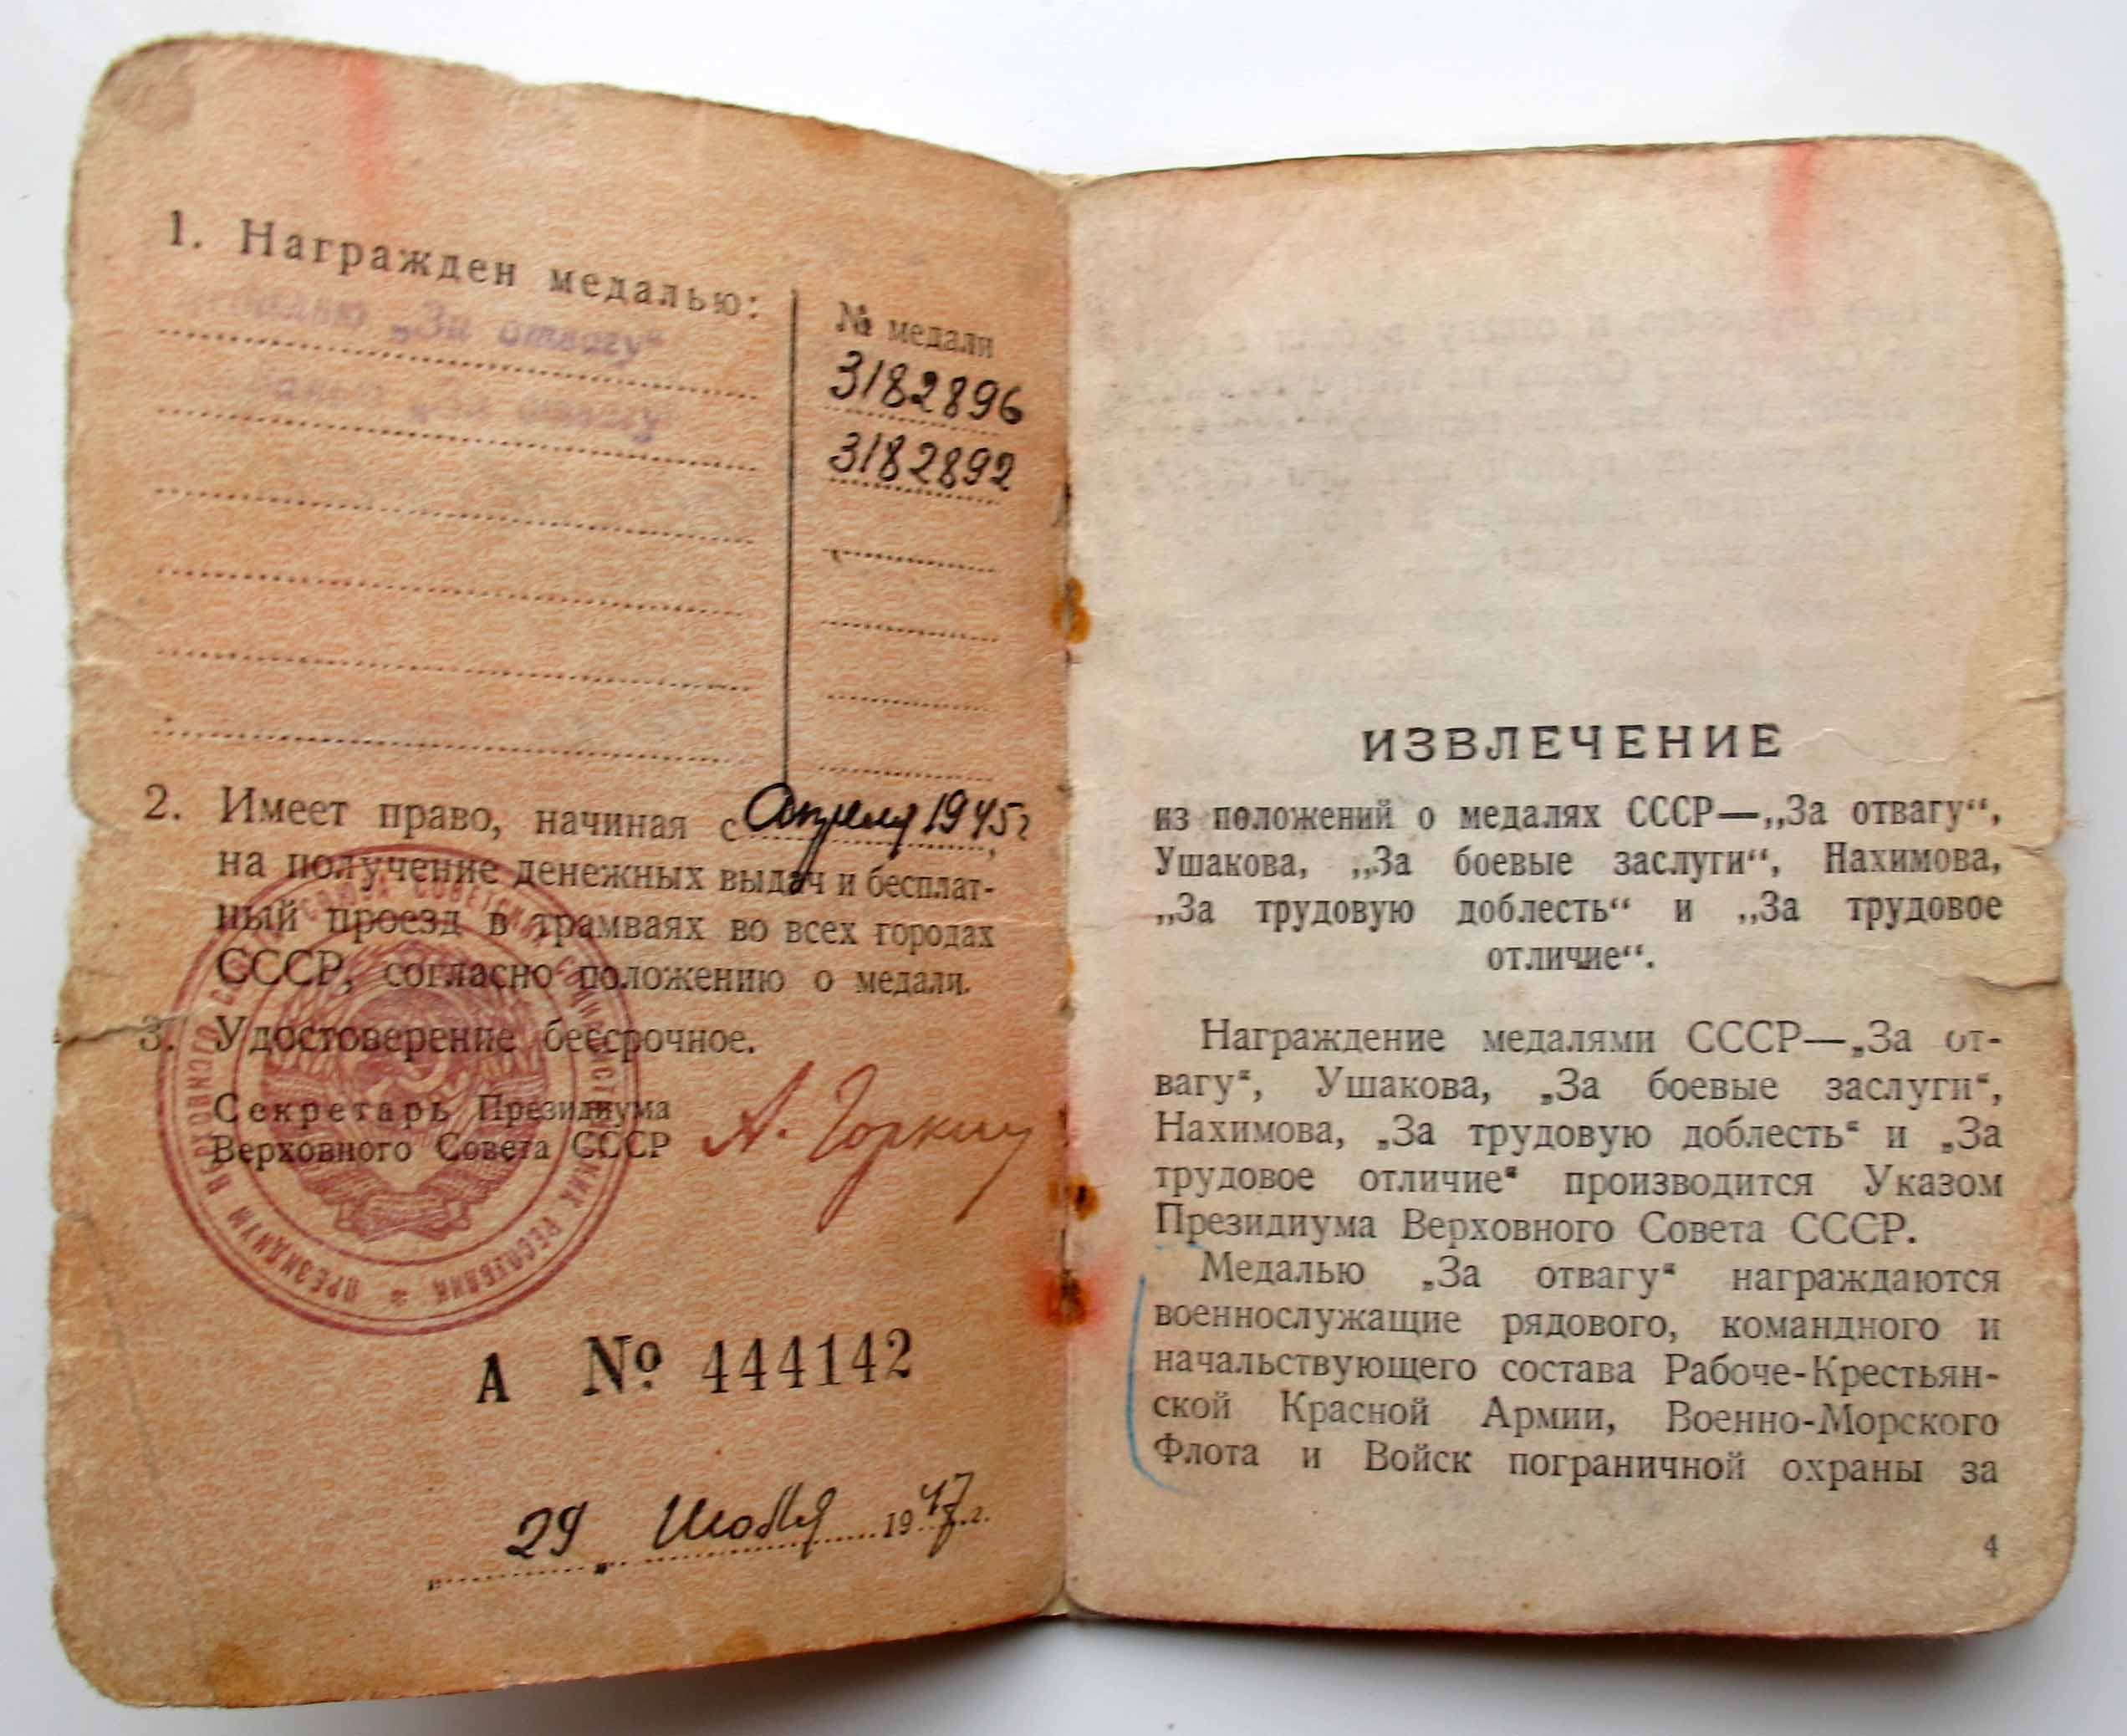 1. Награжден медалью:
№ медали
„За отвагу“
3182896
„За отвагу
3182892
2. Имеет право, начиная с Апреля 1945 г,
на получение денежных выдач и бесплат-
ный проезд в трамваях во всех городах
СССР, согласно положению о медали.
3. Удостоверение бессрочное.
Секретарь Президиума
Верховного Совета СССР А. Горкин
ПРЕЗИДИУМ ВЕРХОВНОГО СОВЕТА СОЮЗА СОВЕТСКИХ СОЦИАЛИСТИЧЕСКИХ РЕСПУБЛИК *
А № 444142
29 „ 1947 г.
ИЗВЛЕЧЕНИЕ
из положений о медалях СССР—„За отвагу“,
Ушакова, „За боевые заслуги“, Нахимова,
„За трудовую доблесть“ и „За трудовое
отличие“.
Награждение медалями СССР—„За от-
вагу“, Ушакова, „За боевые заслуги“,
Нахимова, „За трудовую доблесть“ и „За
трудовое отличие“ производится Указом
Президиума Верховного Совета СССР.
Медалью „За отвагу“ награждаются
военнослужащие рядового, командного и
начальствующего состава Рабоче-Крестьян-
ской Красной Армии, Военно-Морского
Флота и Войск пограничной охраны за
4